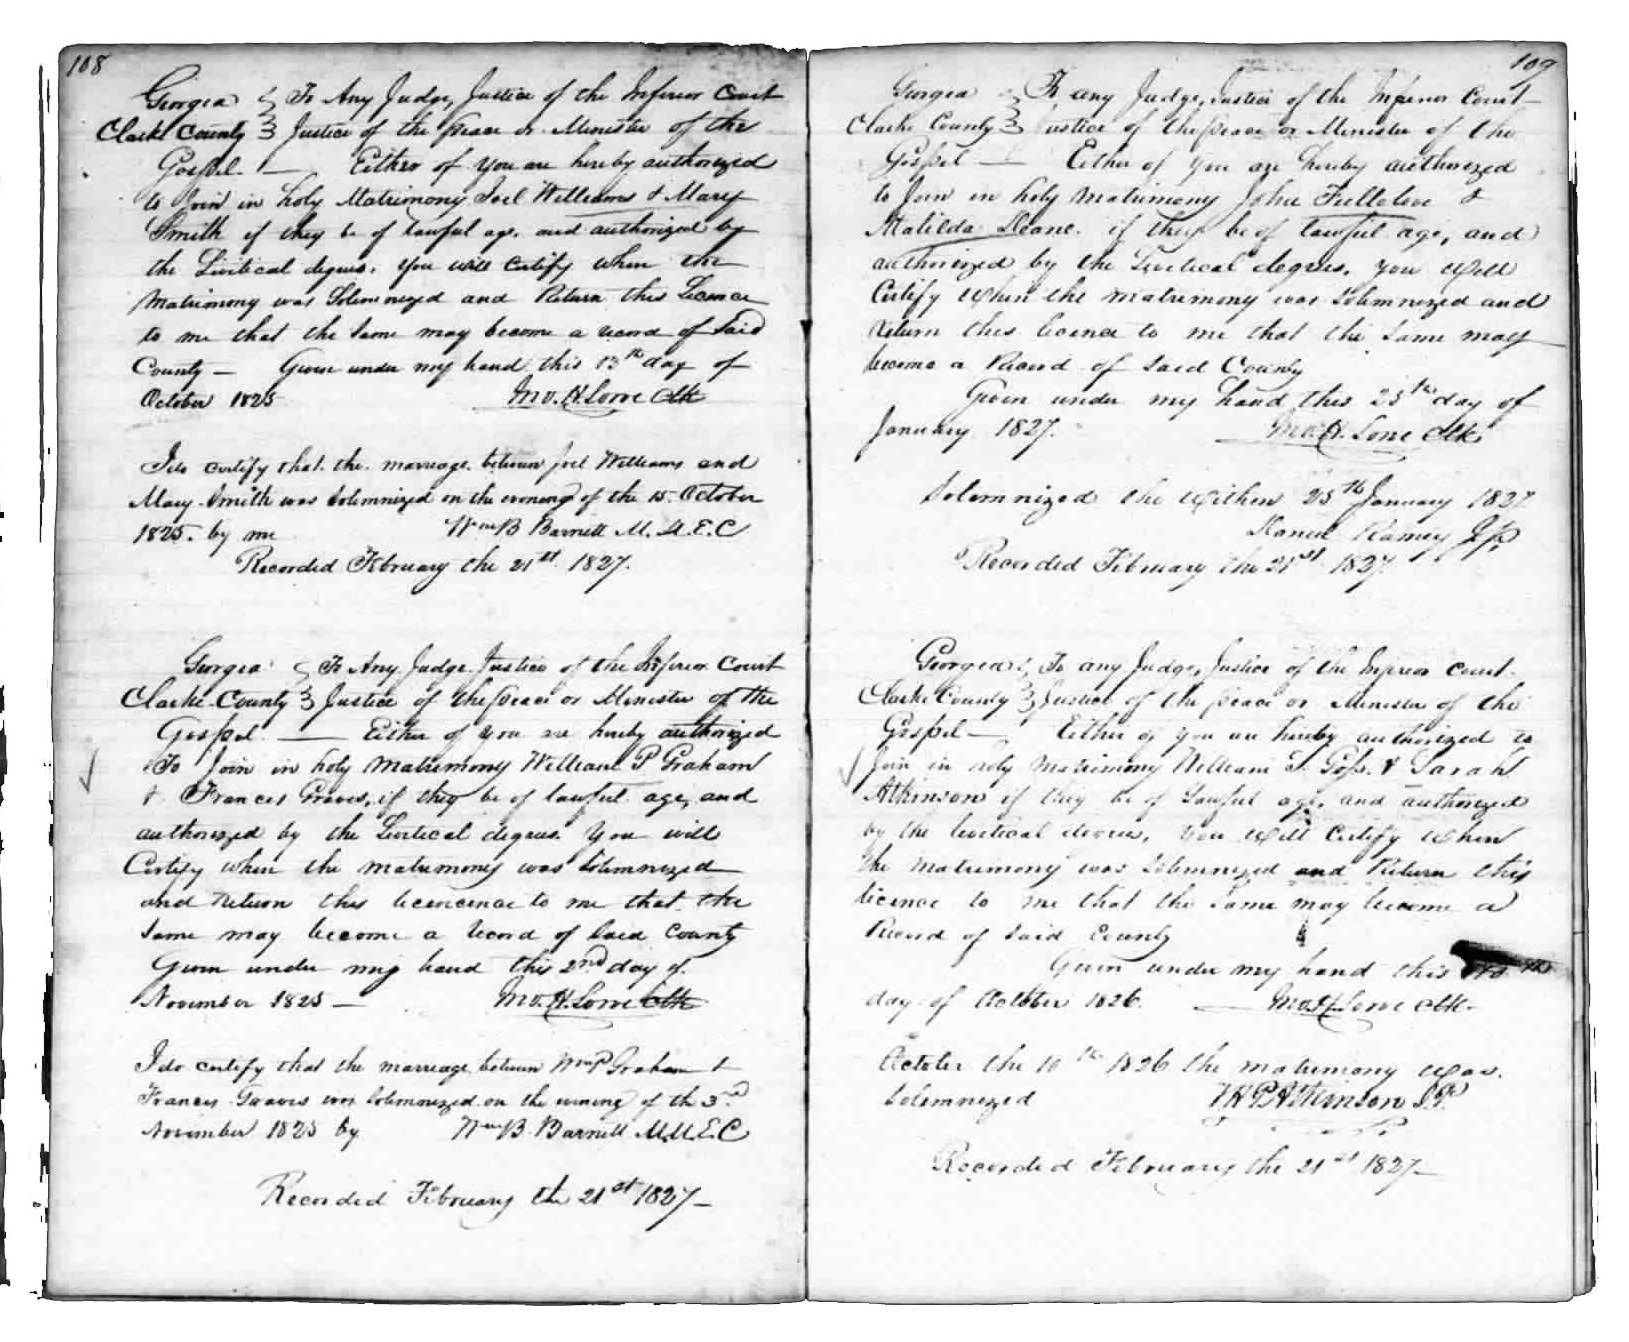 108
Georgia } To Any Judge, Justice of the Inferior Court
Clarke County } Justice of the Peace or Minister of the
Gospel. — Either of you are hereby authorized
to Join in holy Matrimony Joel Williams & Mary
Smith if they be of lawful age, and authorized by
the Livitical degrees. You will Certify when the
Matrimony was Solemnized and Return this Licence
to me that the Same may become a record of Said
County — Given under my hand this 13th day of
October 1825 Jno. H. Lowe Clk
I do certify that the marriage between Joel Williams and
Mary Smith was Solemnized on the evening of the 15 October
1825. by me Wm B Barnett M. M. E. C
Recorded February the 21st 1827.
Georgia } To Any Judge Justice of the Inferior Court
Clarke County } Justice of the Peace or Minister of the
Gospel. — Either of you are hereby authorized
To Join in holy Matrimony William P Graham
& Frances Graves, if they be of lawful age, and
authorized by the Livitical degrees You will
Certify when the matrimony was Solemnized
and Return this licencence to me that the
Same may become a record of Said County
Given under my hand this 2nd day of
November 1825 — Jno. H. Lowe Clk
I do certify that the marriage between Wm P Graham &
Frances Graves was Solemnized on the evening of the 3rd
November 1825 by Wm B. Barnett M. M. E. C
Recorded February the 21st 1827 —
109
Georgia } To any Judge, Justice of the Inferior Court
Clarke County } Justice of the Peace or Minister of the
Gospel — Either of you are hereby authorized
to Join in holy matrimony John Fullilove &
Matilda Deane. if they be of lawful age, and
authorized by the Livitical degrees. you Will
Certify When the matrimony was Solemnized and
Return this licence to me that the Same may
become a Record of Said County
Given under my hand this 25th day of
January 1827. Jno. H. Lowe Clk
Solemnized the Within 25th January 1827
Ramey J.P.
Recorded February the 21st 1827
Georgia } To any Judge, Justice of the Inferior Court.
Clarke County } Justice of the Peace or Minister of the
Gospel — Either of you are hereby authorized to
Join in holy Matrimony William Goss. & Sarah
Atkinson if they be of Lawful age, and authorized
by the livitical degrees, You Will Certify When
the Matrimony was Solemnized and Return this
licence to me that the Same may become a
Record of Said County
Given under my hand this
day of October 1826. Jno. H. Lowe Clk.
October the 10th 1826 the matrimony was.
Solemnized Atkinson J.P.
Recorded February the 21st 1827 —